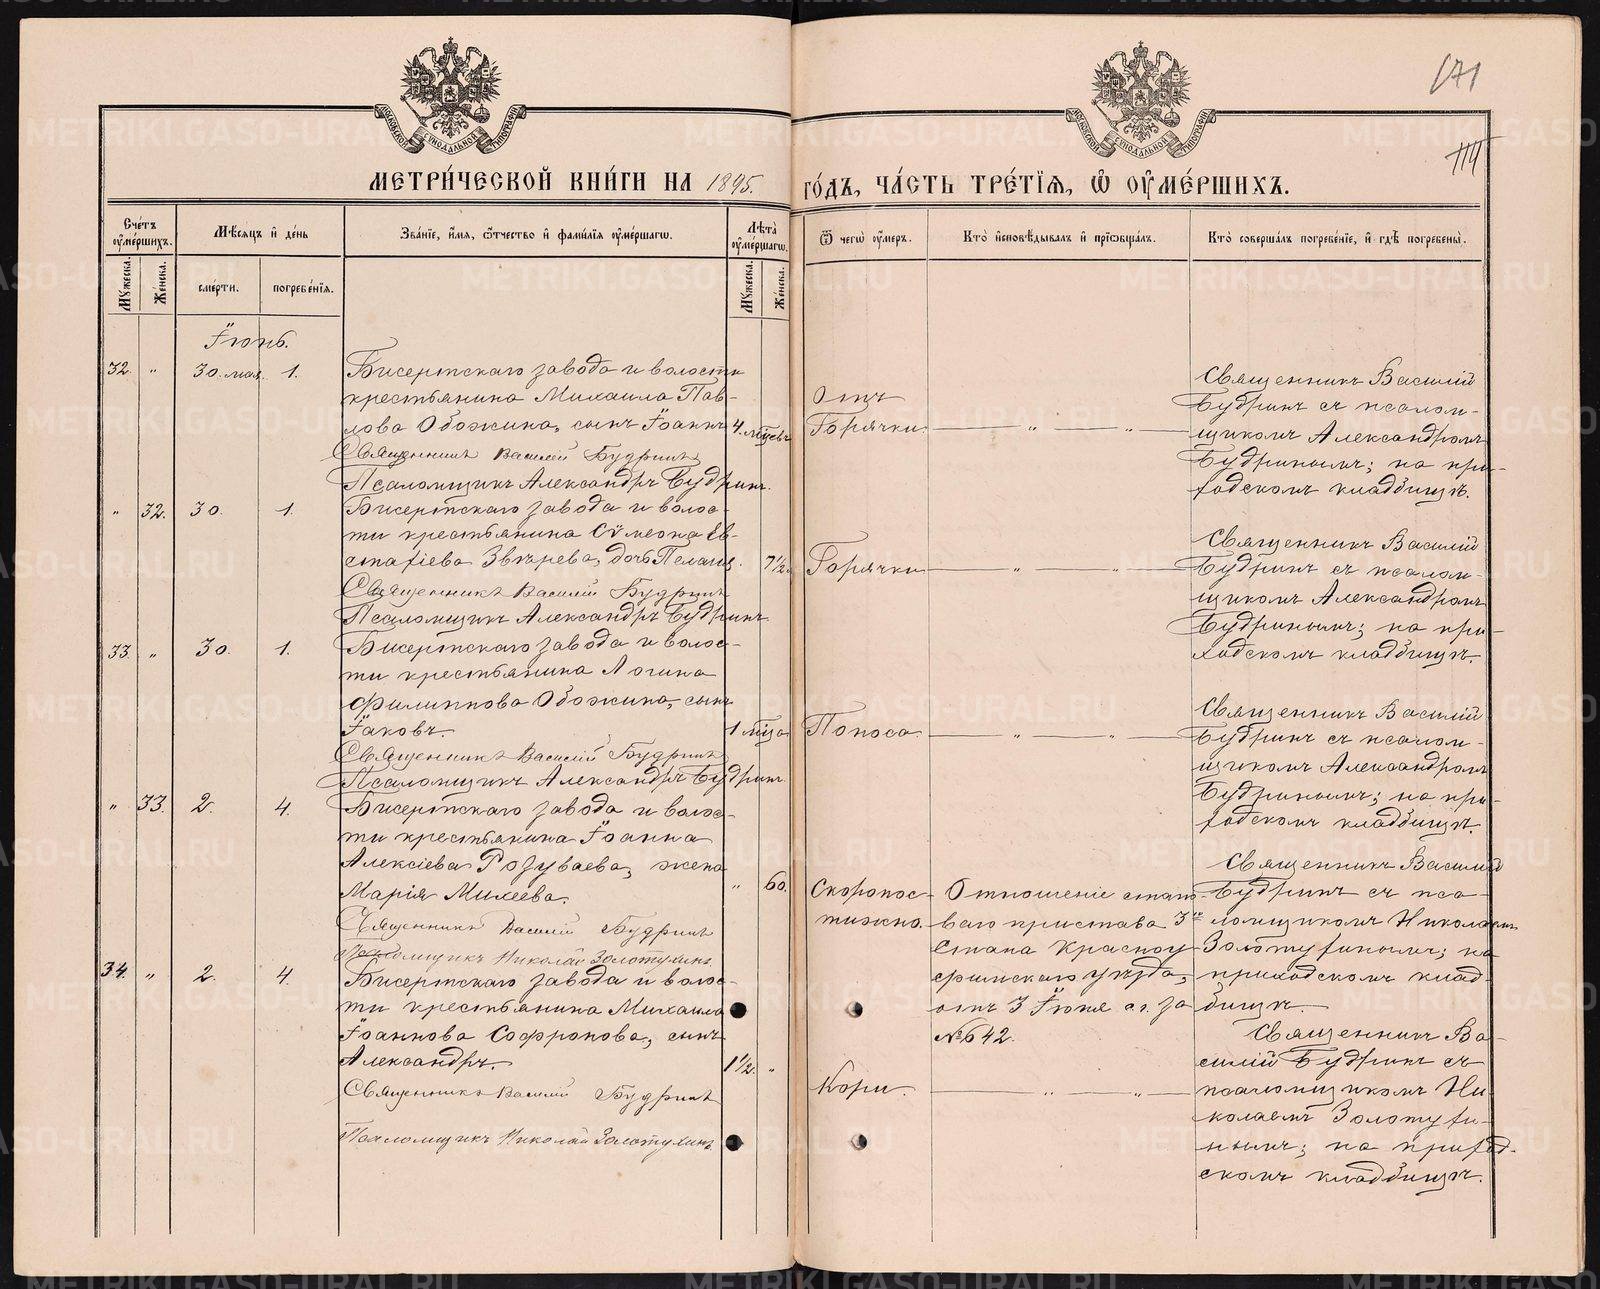 171
114
МЕТРИ́ЧЕСКОЙ КНИ́ГИ НА 1895.
ГО́ДЪ, ЧА́СТЬ ТРЕ́ТІѦ, Ѿ ОУ҆МЕ́РШИХЪ.
Сче́тъ оу҆ме́ршихъ.
Мужеска.
Женска.
Мѣсяцъ и҆ де́нь
сме́рти.
погребе́нїѧ.
Зва́нїе, и҆́мѧ, ѻ҆́тчество и҆ фами́лїѧ оу҆ме́ршагѡ.
Лѣ́та оу҆ме́ршагѡ.
Мужеска.
Женска.
Ѿ чегѡ̀ оу҆́меръ.
Кто̀ и҆сповѣ́дывалъ и҆ прїѡбща́лъ.
Кто̀ соверша́лъ погребе́нїе, и҆ гдѣ̀ погребены̀.
Іюнь.
32. „ 30. мая. 1.
Бисертскаго завода и волости
крестьянина Михаила Пав-
лова Обожина, сынъ Іоаннъ 4. мѣсевъ
Священникъ Василій Будринъ
Псаломщикъ Александръ Будринъ.
Отъ
Горячки. „ „
Священникъ Василій
Будринъ съ псалом-
щикомъ Александромъ
Будринымъ; на при-
ходскомъ кладбищѣ.
„ 32. 30. 1.
Бисертскаго завода и волос-
ти крестьянина Сѵмеона Ев-
стафіева Звѣрева, дочь Пелагія. 7½
Священникъ Василій Будринъ
Псаломщикъ Александръ Будринъ
Горячки „ „
Священникъ Василій
Будринъ съ псалом-
щикомъ Александромъ
Будринымъ; на при-
ходскомъ кладбищѣ.
33. „ 30. 1.
Бисертскаго завода и волос-
ти крестьянина Логина
Филиппова Обожина, сынъ
Іаковъ. 1 мѣсца
Священникъ Василій Будринъ
Псаломщикъ Александръ Будринъ
Поноса. „ „
Священникъ Василій
Будринъ съ псалом-
щикомъ Александромъ
Будринымъ; на при-
ходскомъ кладбищѣ.
„ 33. 2. 4.
Бисертскаго завода и волос-
ти крестьянина Іоанна
Алексіева Розуваева, жена
Марія Михеева. „ 60.
Священникъ Василій Будринъ
Псаломщикъ Николай Золотухинъ
Скоропос-
тижно.
Отношеніе стано-
ваго пристава 3го
стана Красноу-
фимскаго уѣзда,
отъ 3 Іюня с.г. за
№ 642.
Священникъ Василій
Будринъ съ пса-
ломщикомъ Николаемъ
Золотухинымъ; на
приходскомъ клад-
бищѣ.
34. „ 2. 4.
Бисертскаго завода и волос-
ти крестьянина Михаила
Іоаннова Софронова, сынъ
Александръ. 1½. „
Священникъ Василій Будринъ
Псаломщикъ Николай Золотухинъ
Кори. „ „
Священникъ Ва-
силій Будринъ съ
псаломщикомъ Ни-
колаемъ Золотухи-
нымъ; на приход-
скомъ кладбищѣ.